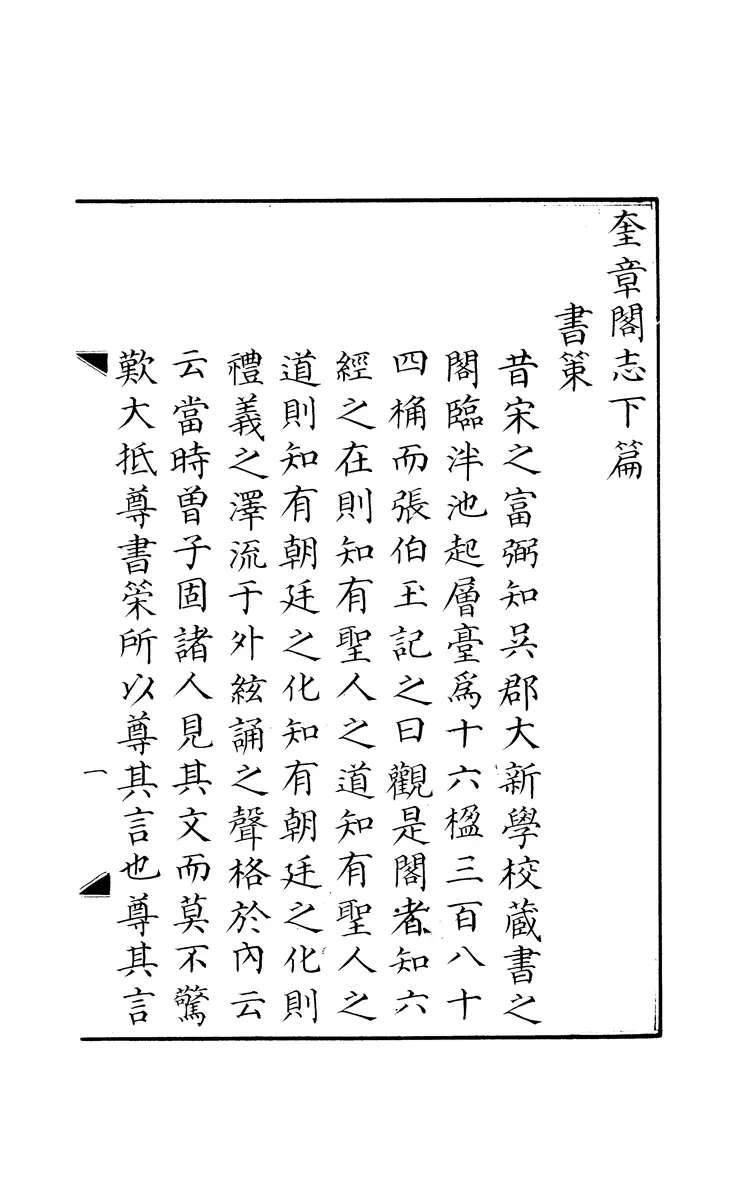 奎章閣志下篇
書策
昔宋之富弼知吳郡大新學校蔵書之
閣臨泮池起層臺爲十六楹三百八十
四桷而張伯玉記之曰觀是閣者知六
經之在則知有聖人之道知有聖人之
道則知有朝廷之化知有朝廷之化則
禮義之澤流于外絃誦之聲格於內云
云當時曽子固諸人見其文而莫不驚
歎大抵尊書策所以尊其言也尊其言
一